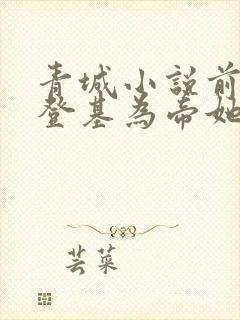 青城小説前
登基為帝她
芸菜